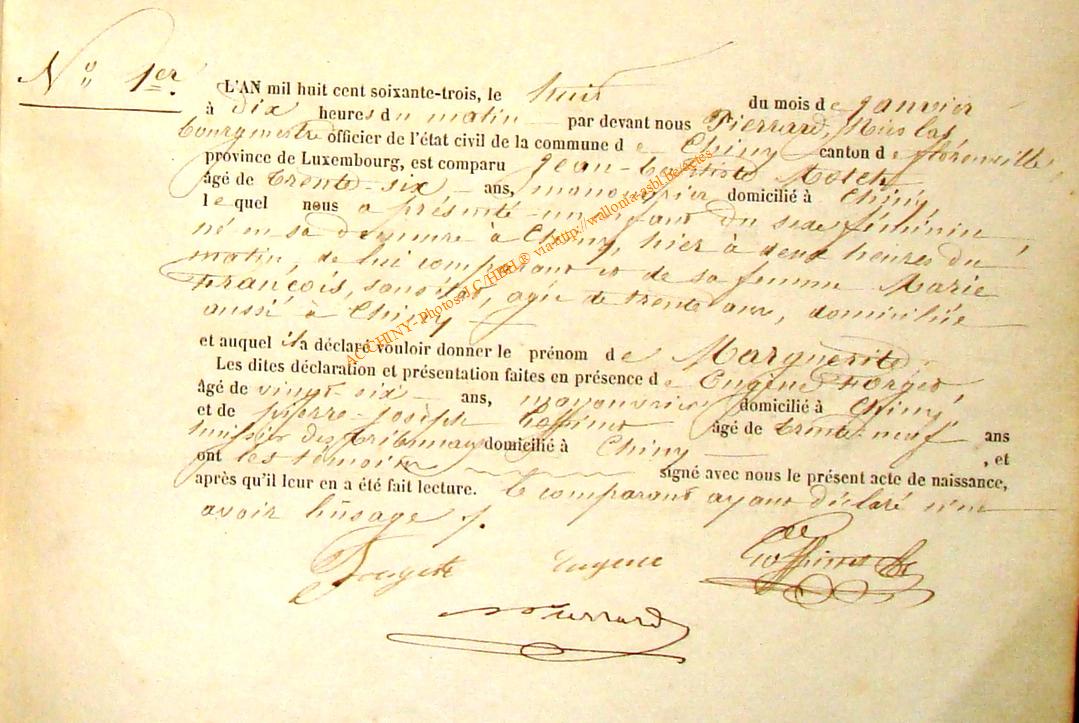 No 1er.
L'AN mil huit cent soixante-trois, le huit du mois de janvier
à dix heures du matin par devant nous Pierrard, Nicolas,
bourgmestre officier de l'état civil de la commune de Chiny canton de florenville,
province de Luxembourg, est comparu Jean-Baptiste
âgé de trente-six ans, manouvrier domicilié à Chiny
lequel nous a présenté un enfant du sexe féminin,
né en sa demeure à Chiny, hier à deux heures du
matin, de lui comparant et de sa femme Marie
François, sans état, agée de trente ans, domiciliée
aussi à Chiny
et auquel il a déclaré vouloir donner le prénom de Marguerite.
Les dites déclaration et présentation faites en présence de Eugène
âgé de vingt-six ans, manouvrier domicilié à Chiny,
et de pierre-joseph âgé de trente-neuf ans
huissier des tribunaux domicilié à Chiny , et
ont les témoins signé avec nous le présent acte de naissance,
après qu'il leur en a été fait lecture. le comparant ayant déclaré n'en
avoir l'usage ./.
Eugene
Pierrard
AC CHINY - Photos JLC/HBH® via http://wallonia-asbl.be/actes